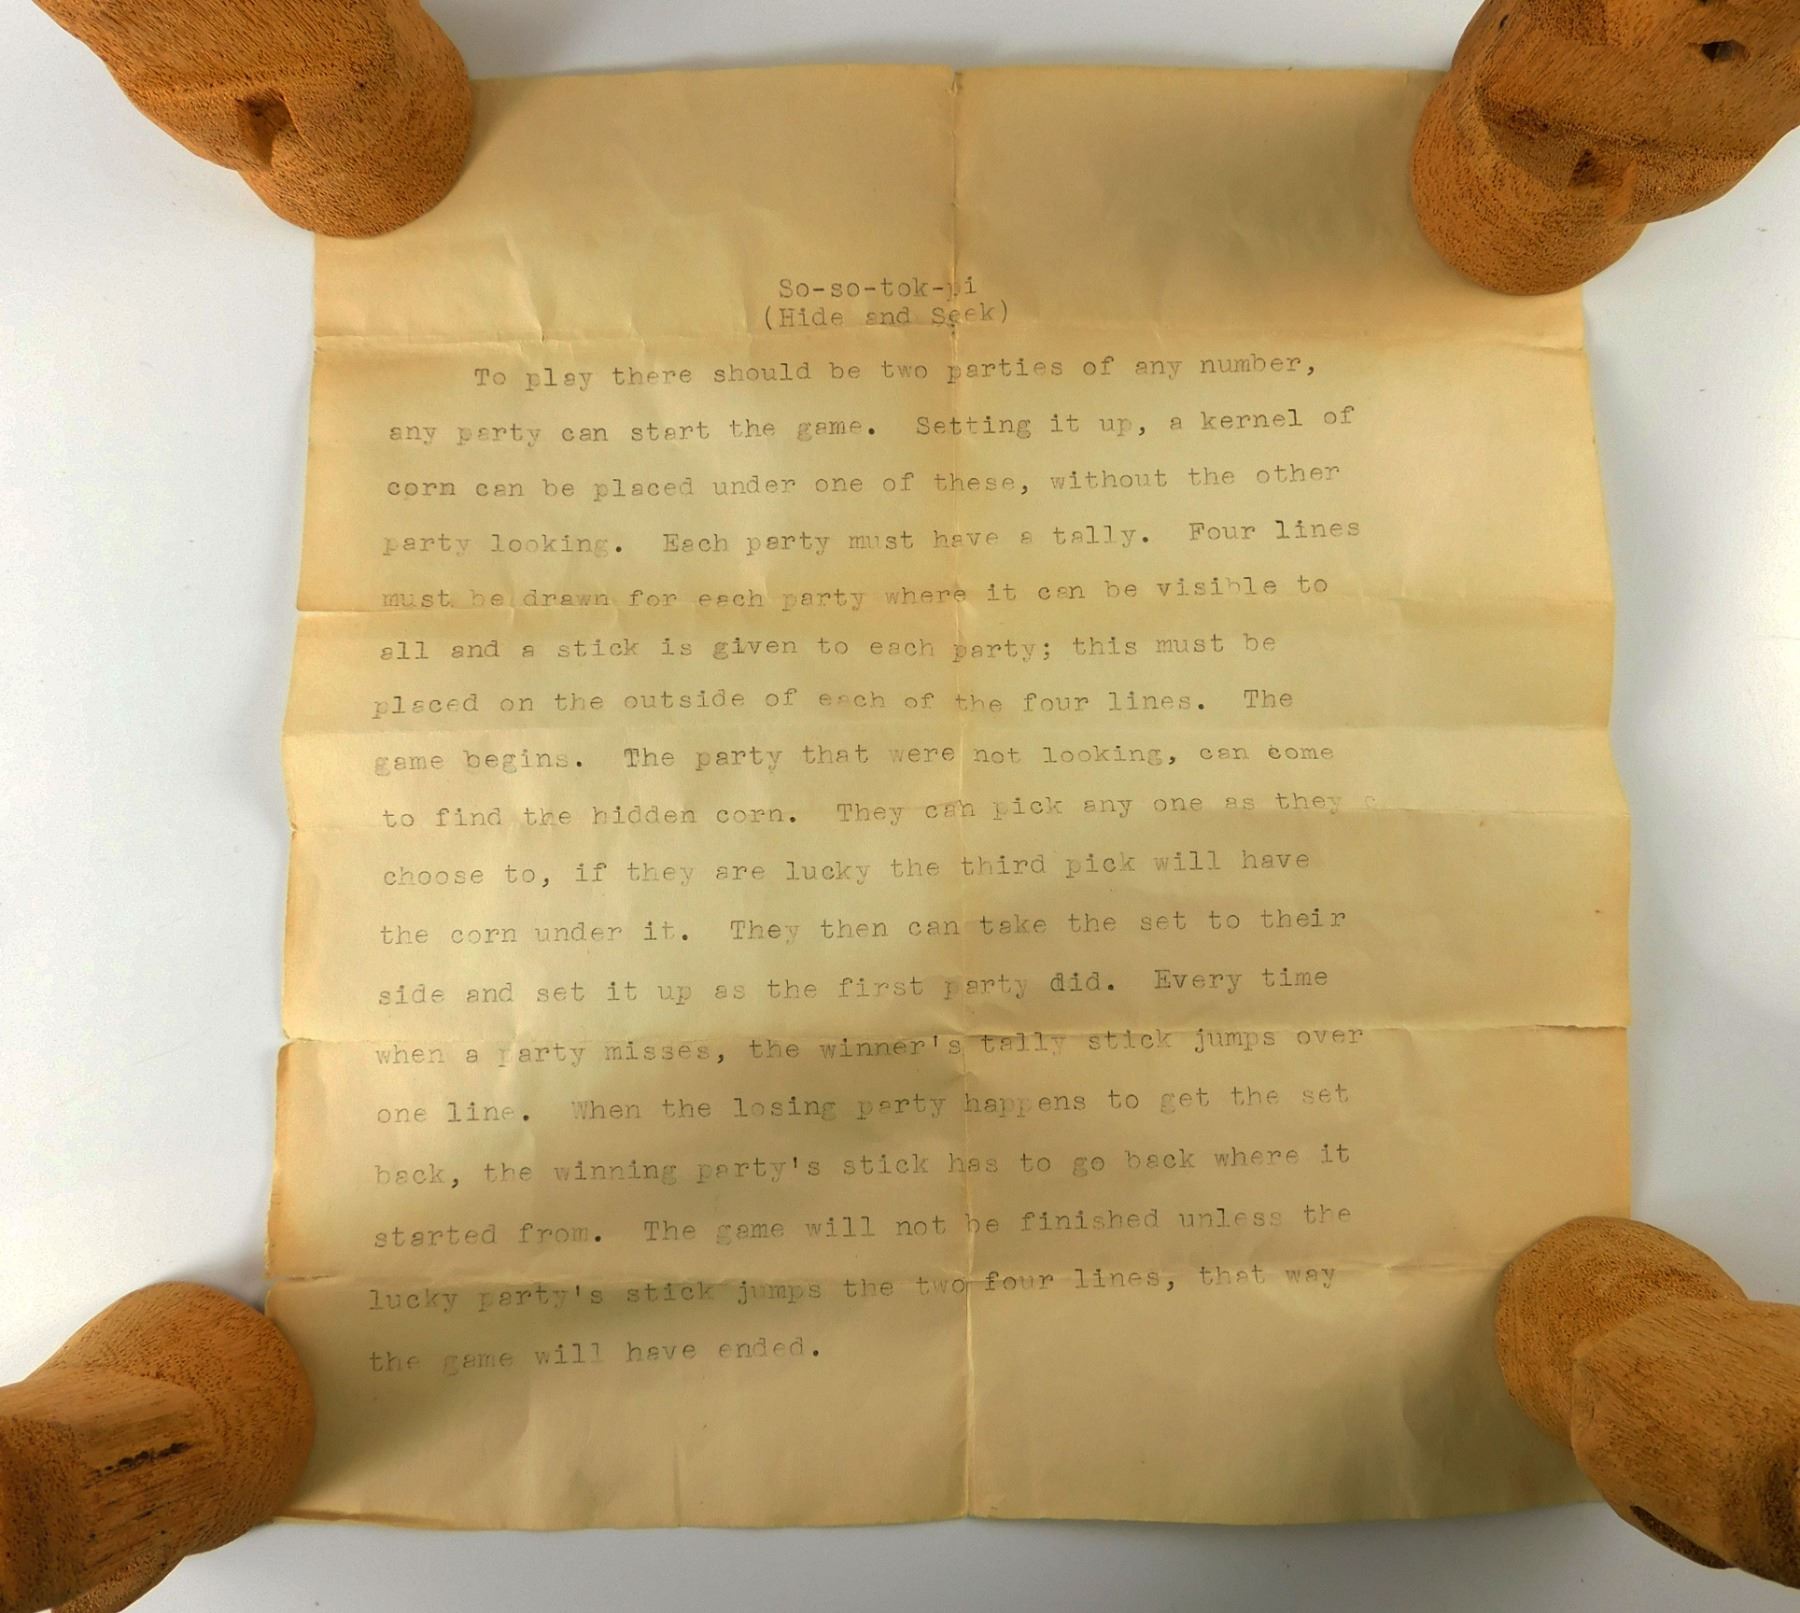 So-so-tok-pi
(Hide and Seek)
To play there should be two parties of any number,
any party can start the game. Setting it up, a kernel of
corn can be placed under one of these, without the other
party looking. Each party must have a tally. Four lines
must be drawn for each party where it can be visible to
all and a stick is given to each party; this must be
placed on the outside of each of the four lines. The
game begins. The party that were not looking, can come
to find the hidden corn. They can pick any one as they c
choose to, if they are lucky the third pick will have
the corn under it. They then can take the set to their
side and set it up as the first party did. Every time
when a party misses, the winner's tally stick jumps over
one line. When the losing party happens to get the set
back, the winning party's stick has to go back where it
started from. The game will not be finished unless the
lucky party's stick jumps the two four lines, that way
the game will have ended.